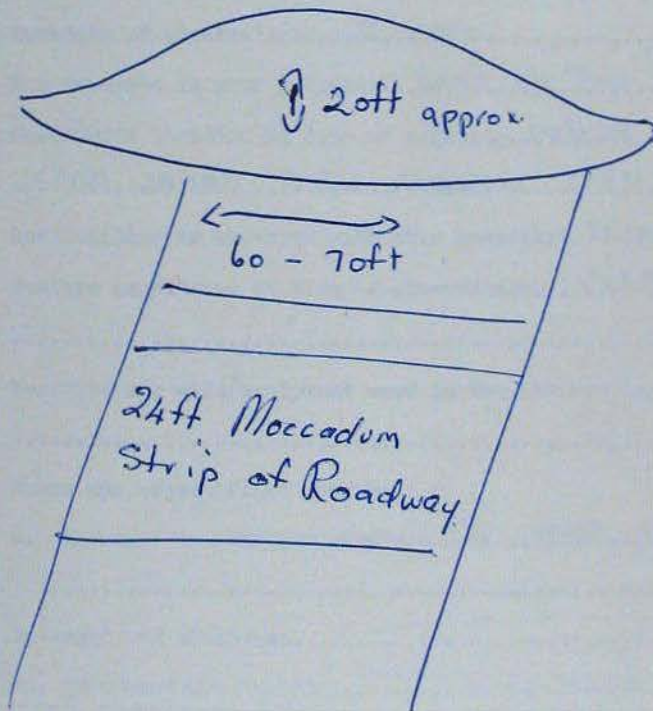 20ft approx
60 - 70ft
24ft Moccadum
Strip of Roadway